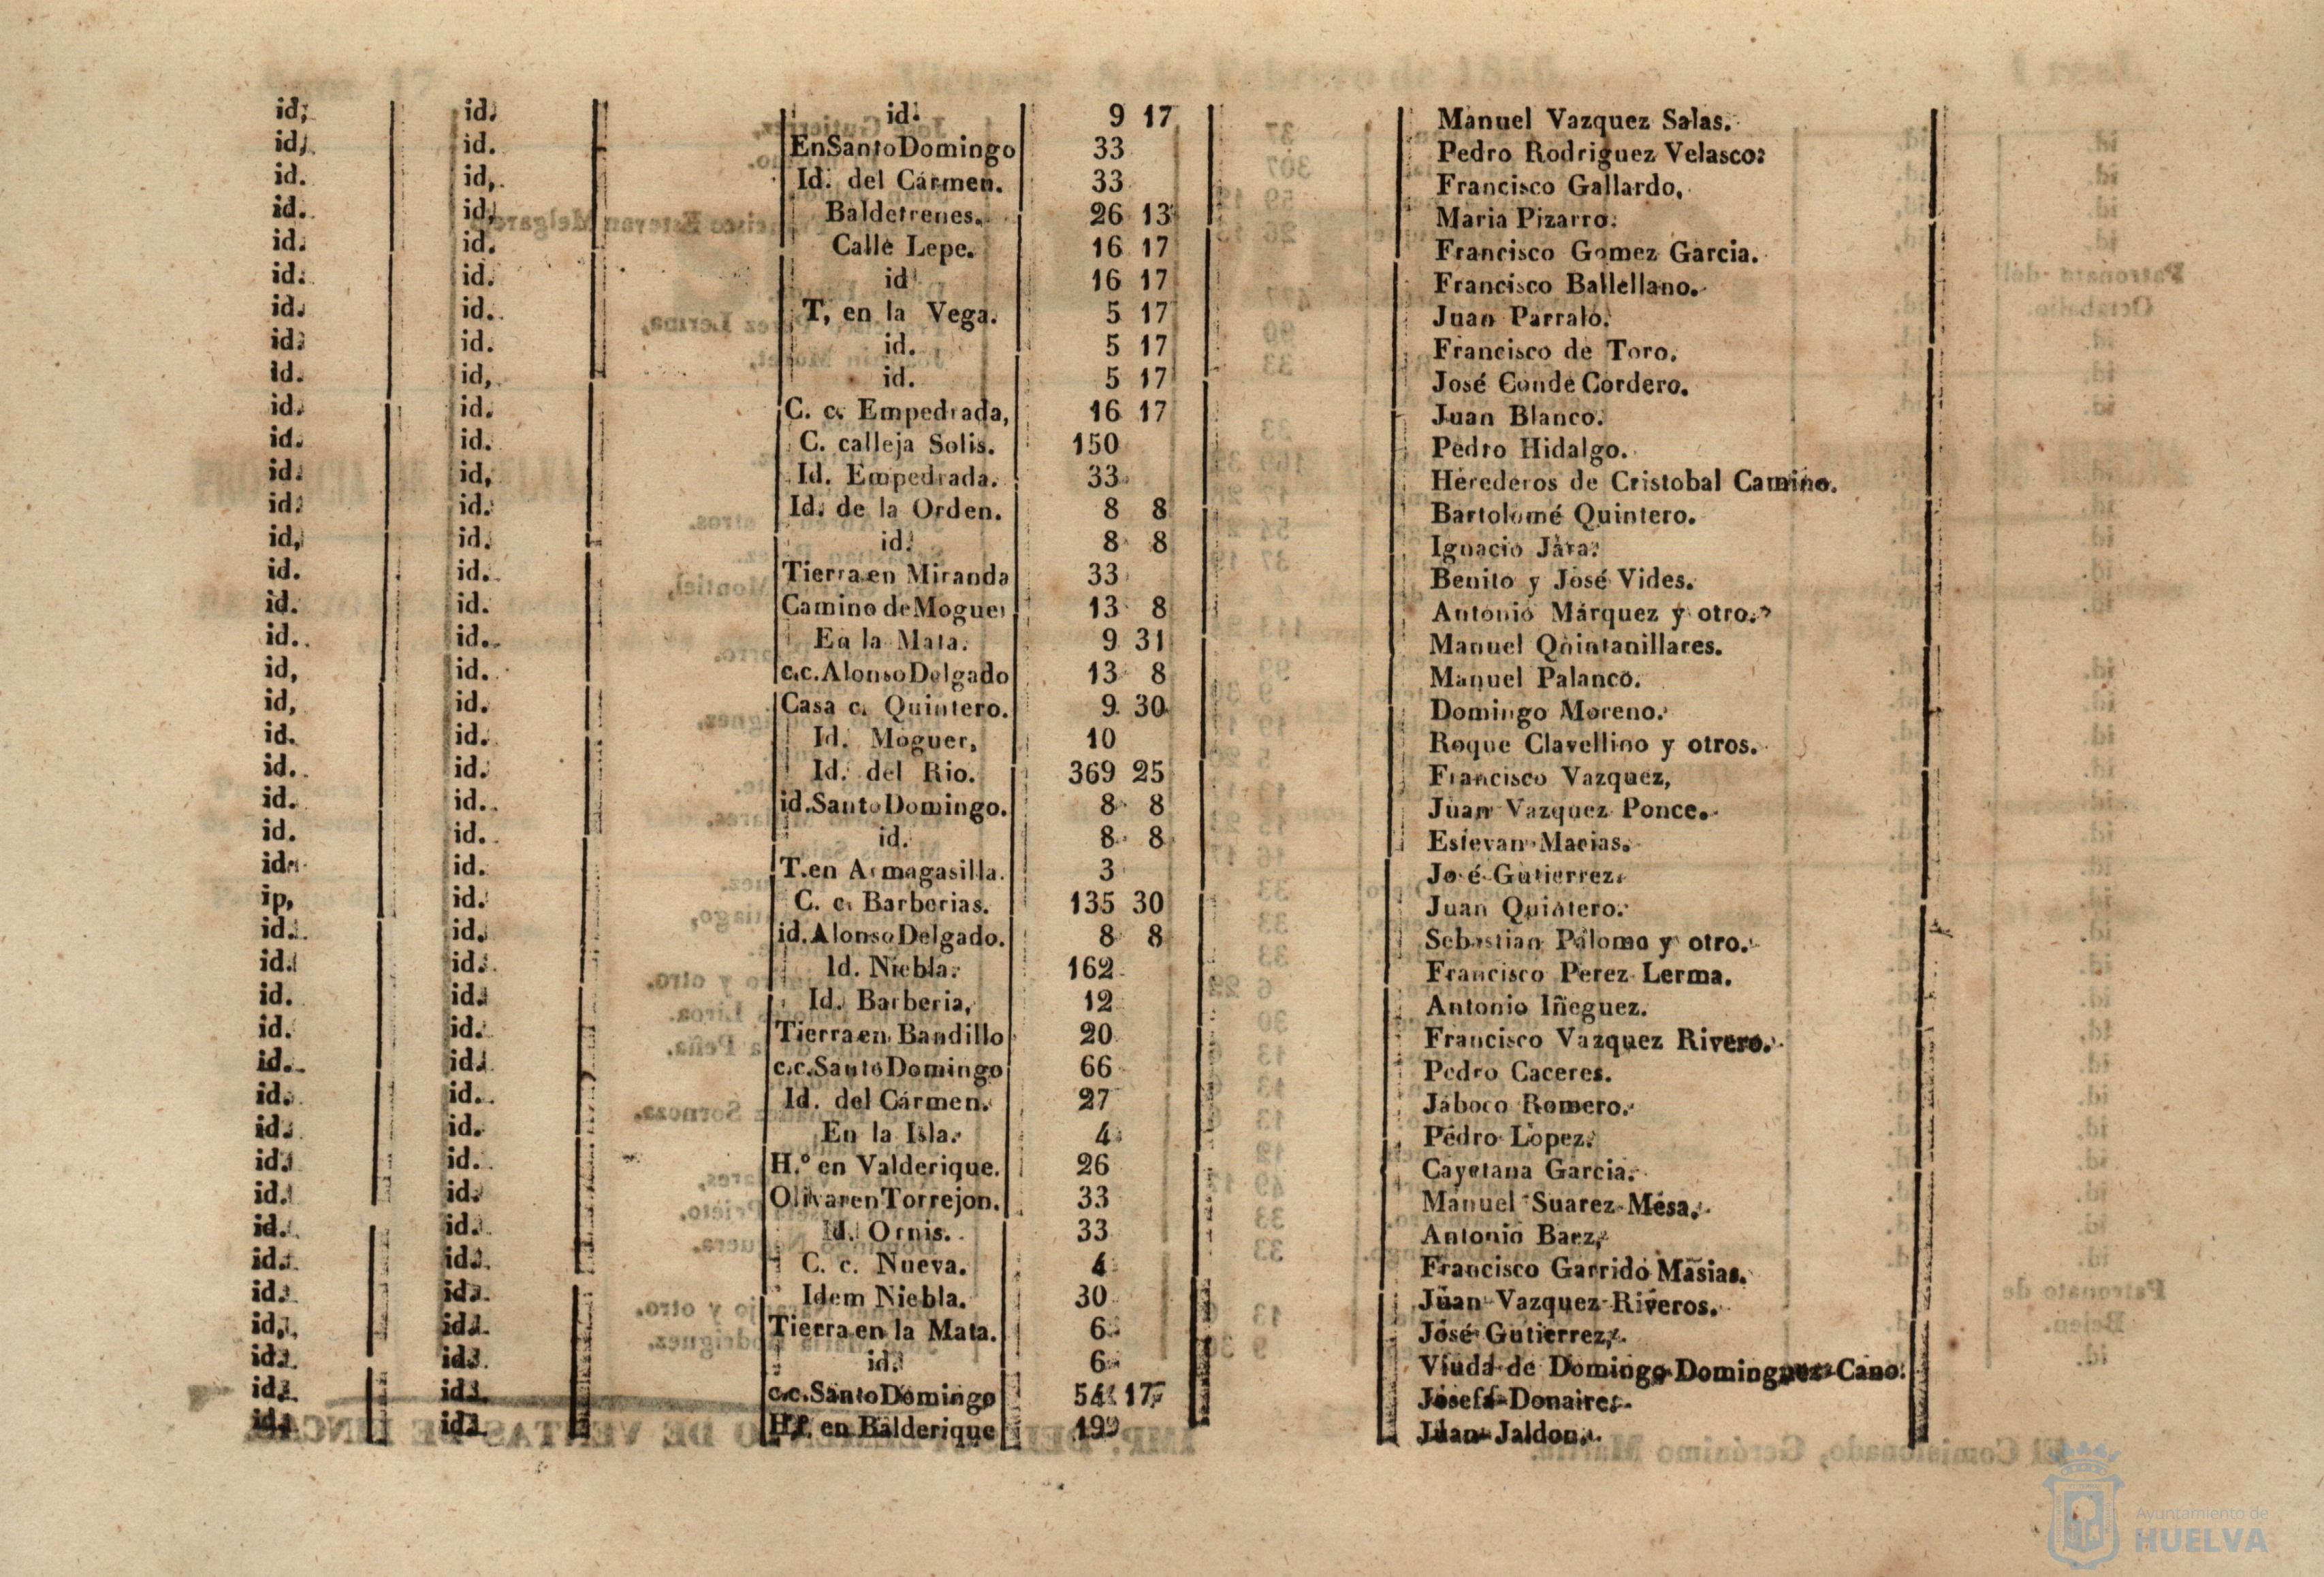 id; id. id. 9 17 Manuel Vazquez Salas.
id; id. En Santo Domingo 33 Pedro Rodriguez Velasco:
id. id, Id. del Cármen. 33 Francisco Gallardo,
id. id, Baldetrenes. 26 13 Maria Pizarro.
id. id. Calle Lepe. 16 17 Francisco Gomez Garcia.
id. id. id 16 17 Francisco Ballellano.
id. id. T, en la Vega. 5 17 Juan Parralo.
id. id. id. 5 17 Francisco de Toro.
id. id, id. 5 17 José Conde Cordero.
id. id. C. c. Empedrada, 16 17 Juan Blanco.
id. id. C. calleja Solis. 150 Pedro Hidalgo.
id. id, Id. Empedrada. 33 Herederos de Cristobal Camino.
id. id. Id. de la Orden. 8 8 Bartolomé Quintero.
id, id. id. 8 8 Ignacio Jara.
id. id. Tierra en Miranda 33 Benito y José Vides.
id. id. Camino de Moguer 13 8 Antonio Márquez y otro.
id. id. En la Mata. 9 31 Manuel Quintanillares.
id, id. c.c. Alonso Delgado 13 8 Manuel Palanco.
id, id. Casa c. Quintero. 9 30 Domingo Moreno.
id. id. Id. Moguer, 10 Roque Clavellino y otros.
id. id. Id. del Rio. 369 25 Francisco Vazquez,
id. id. id. Santo Domingo. 8 8 Juan Vazquez Ponce.
id. id. id. 8 8 Estevan Macias.
id. id. T. en Armagasilla. 3 José Gutierrez.
ip, id. C. c. Barberias. 135 30 Juan Quintero.
id. id. id. Alonso Delgado. 8 8 Sebastian Palomo y otro.
id. id. Id. Niebla. 162 Francisco Perez Lerma.
id. id. Id. Barberia, 12 Antonio Iñeguez.
id. id. Tierra en Bandillo 20 Francisco Vazquez Rivero.
id. id. c.c. Santo Domingo 66 Pedro Caceres.
id. id. Id. del Cármen. 27 Jaboco Romero.
id. id. En la Isla. 4 Pedro Lopez.
id. id. H.º en Valderique. 26 Cayetana Garcia.
id. id. Olivar en Torrejon. 33 Manuel Suarez Mesa.
id. id. Id. Ornis. 33 Antonio Baez,
id. id. C. c. Nueva. 4 Francisco Garrido Masias.
id. id. Idem Niebla. 30 Juan Vazquez Riveros.
id, id. Tierra en la Mata. 6 José Gutierrez,
id. id. id. 6 Viuda de Domingo Dominguez Cano.
id. id. c.c. Santo Domingo 54 17 Josefa Donaire.
id. id. en Balderique 19 Juan Jaldon.
Ayuntamiento de
HUELVA